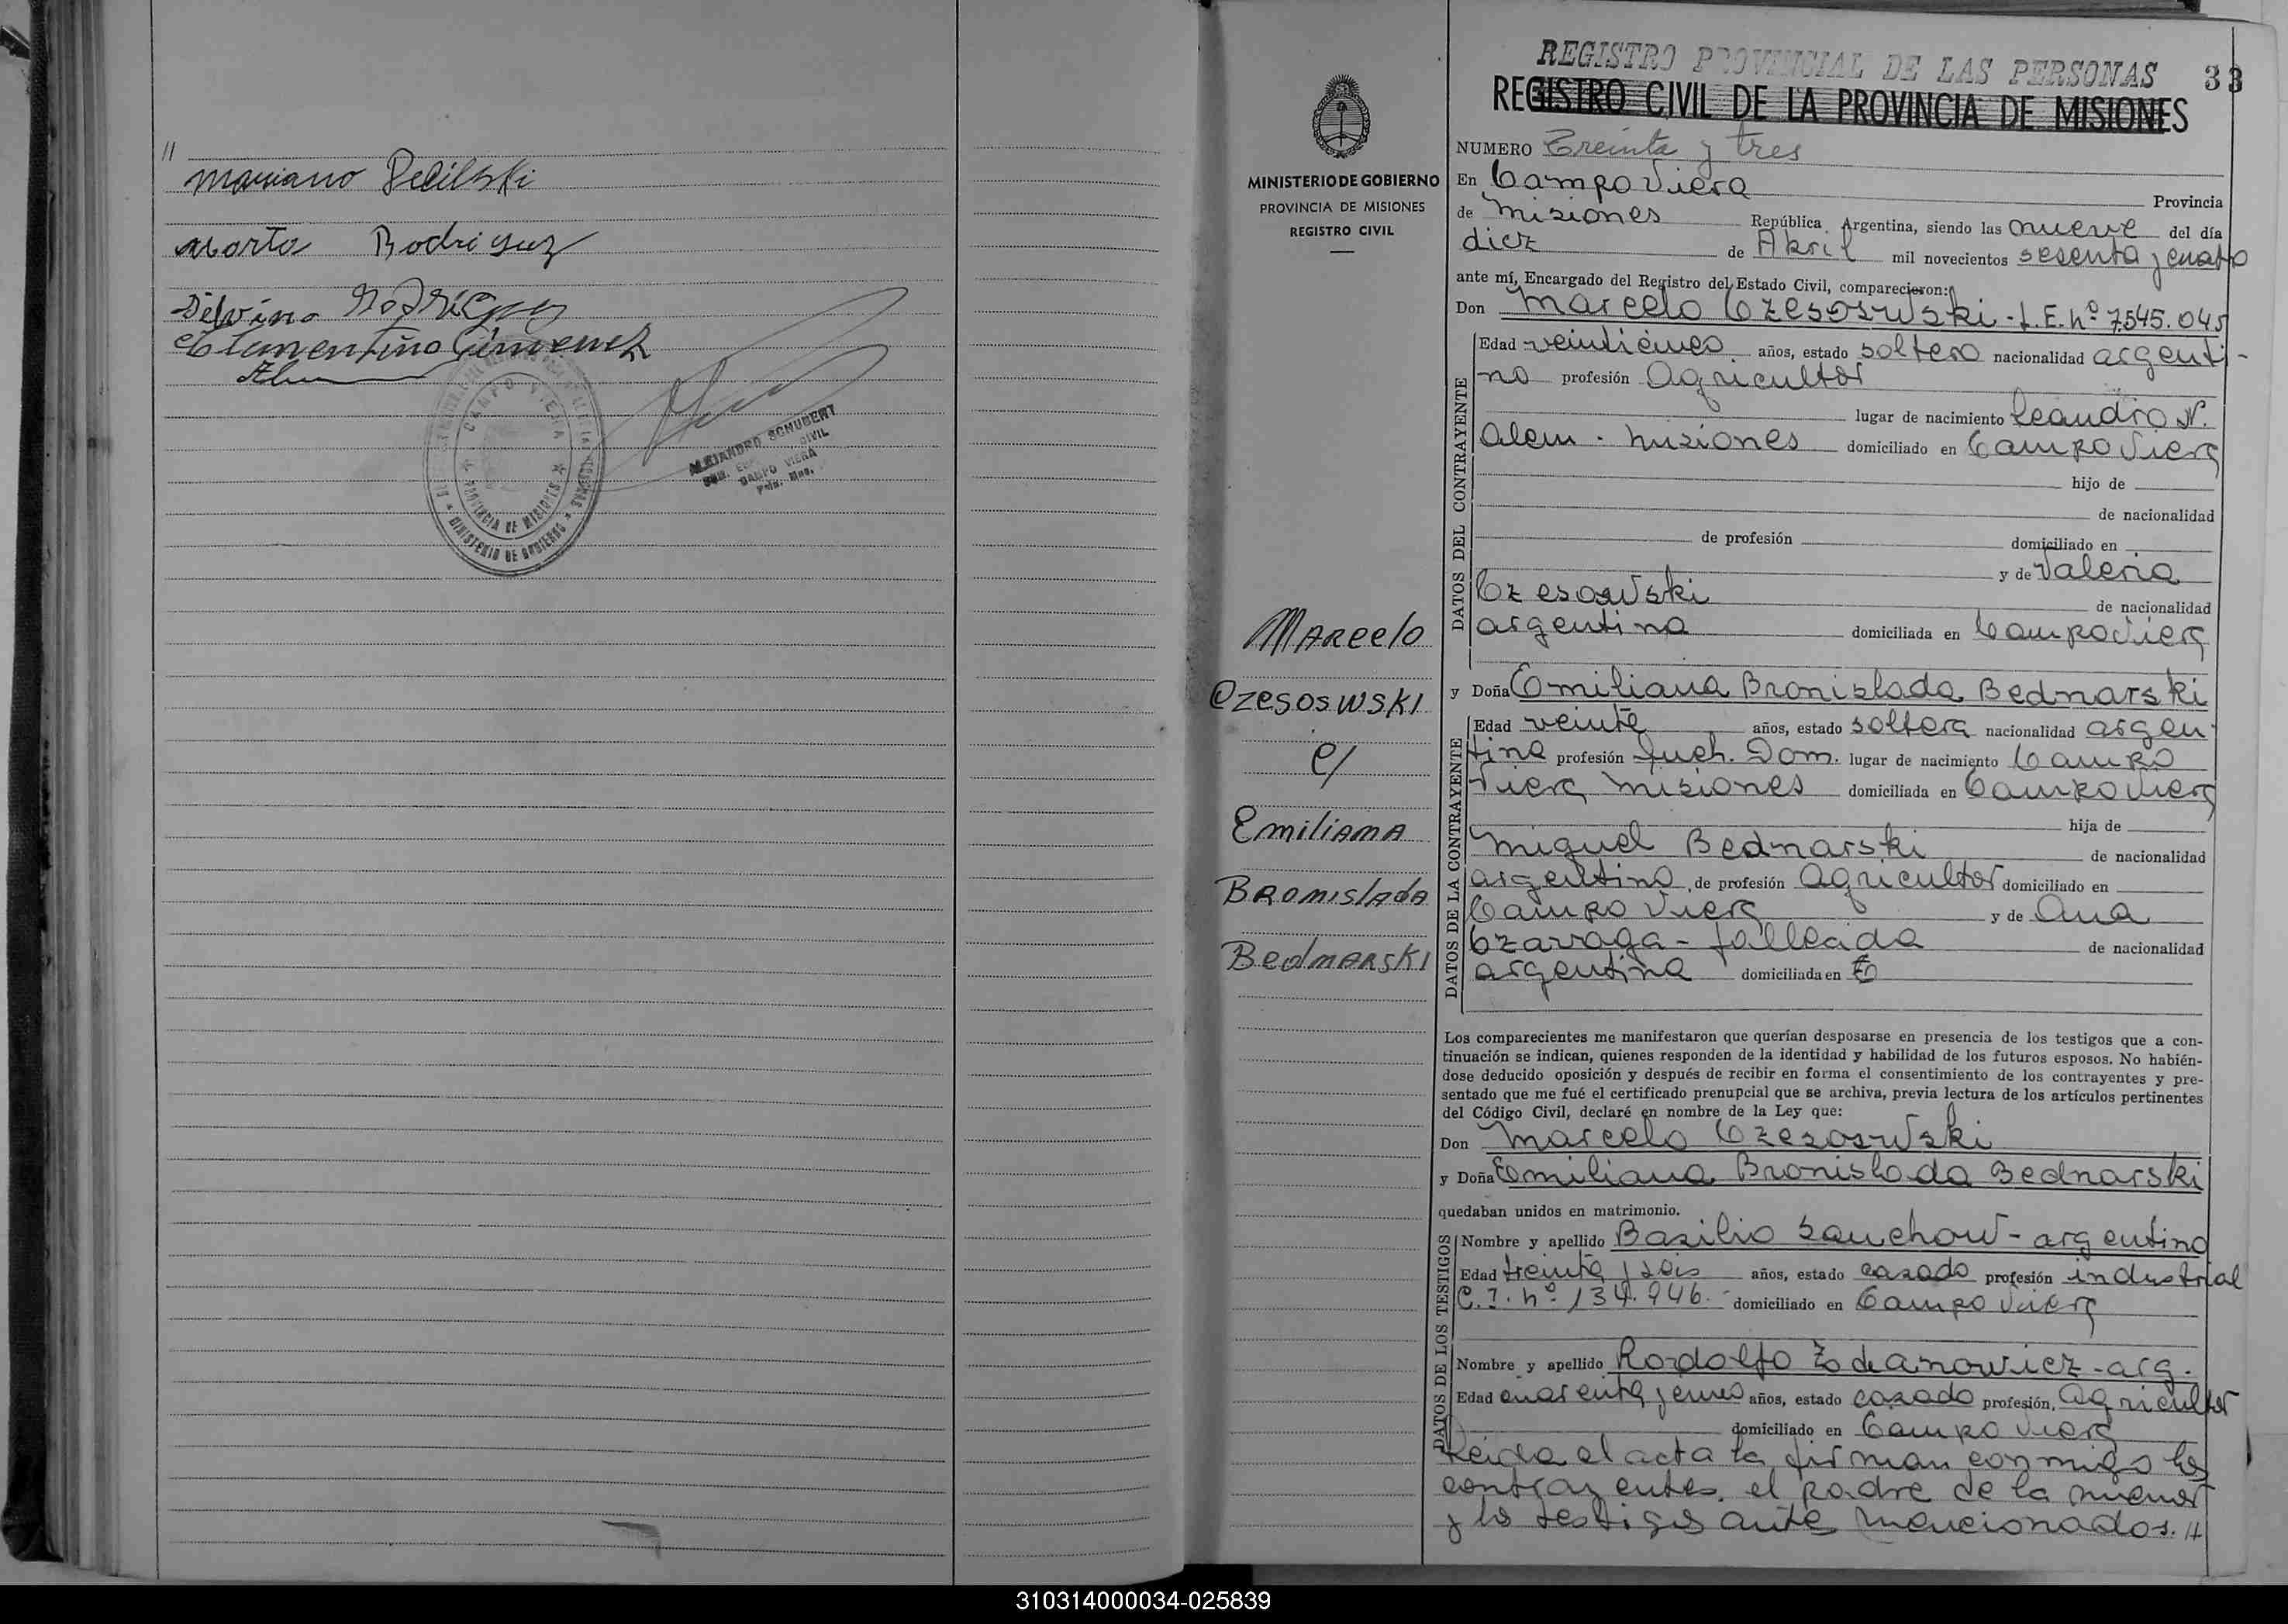 //
Mariano Pelilski
Marta Rodriguez
Silvino Rodriguez
Clementino Gimenez
CAMPO VIERA
PROVINCIA DE MISIONES
MINISTERIO DE GOBIERNO
ALEJANDRO SCHUBERT
CIVIL
CAMPO VIERA
Pcia. Mnes.
REGISTRO PROVINCIAL DE LAS PERSONAS 33
REGISTRO CIVIL DE LA PROVINCIA DE MISIONES
MINISTERIO DE GOBIERNO
PROVINCIA DE MISIONES
REGISTRO CIVIL
Marcelo
Czesoswski
c/
Emiliana
Bronislada
Bednarski
NUMERO Treinta y tres
En Campo Viera Provincia
de Misiones República Argentina, siendo las nueve del día
diez de Abril mil novecientos sesenta y cuatro
ante mí, Encargado del Registro del Estado Civil, comparecieron:
Don Marcelo Czesoswski - L.E. nº 7.545.045
DATOS DEL CONTRAYENTE
Edad veinticinco años, estado soltero nacionalidad argenti-
no profesión Agricultor
lugar de nacimiento Leandro N.
Alem - Misiones domiciliado en Campo Viera
hijo de
de nacionalidad
de profesión domiciliado en
y de Valeria
Czesoswski de nacionalidad
argentina domiciliada en Campo Viera
y Doña Emiliana Bronislada Bednarski
DATOS DE LA CONTRAYENTE
Edad veinte años, estado soltera nacionalidad argen-
tina profesión Queh. Dom. lugar de nacimiento Campo
Viera Misiones domiciliada en Campo Viera
hija de
Miguel Bednarski de nacionalidad
argentino, de profesión Agricultor domiciliado en
Campo Viera y de Ana
Czarraga - fallecida de nacionalidad
argentina domiciliada en
Los comparecientes me manifestaron que querían desposarse en presencia de los testigos que a con-
tinuación se indican, quienes responden de la identidad y habilidad de los futuros esposos. No habién-
dose deducido oposición y después de recibir en forma el consentimiento de los contrayentes y pre-
sentado que me fué el certificado prenupcial que se archiva, previa lectura de los artículos pertinentes
del Código Civil, declaré en nombre de la Ley que:
Don Marcelo Czesoswski
y Doña Emiliana Bronislada Bednarski
quedaban unidos en matrimonio.
DATOS DE LOS TESTIGOS
Nombre y apellido Basilio Sauchow - argentino
Edad treinta y seis años, estado casado profesión industrial
C.I. nº 134.946.- domiciliado en Campo Viera
Nombre y apellido Rodolfo Zodcanowicz - arg.
Edad cuarenta y cinco años, estado casado profesión, Agricultor
domiciliado en Campo Viera
Leida el acta la firman conmigo los
contrayentes, el padre de la menor
y los testigos ante mencionados. //
310314000034-025839